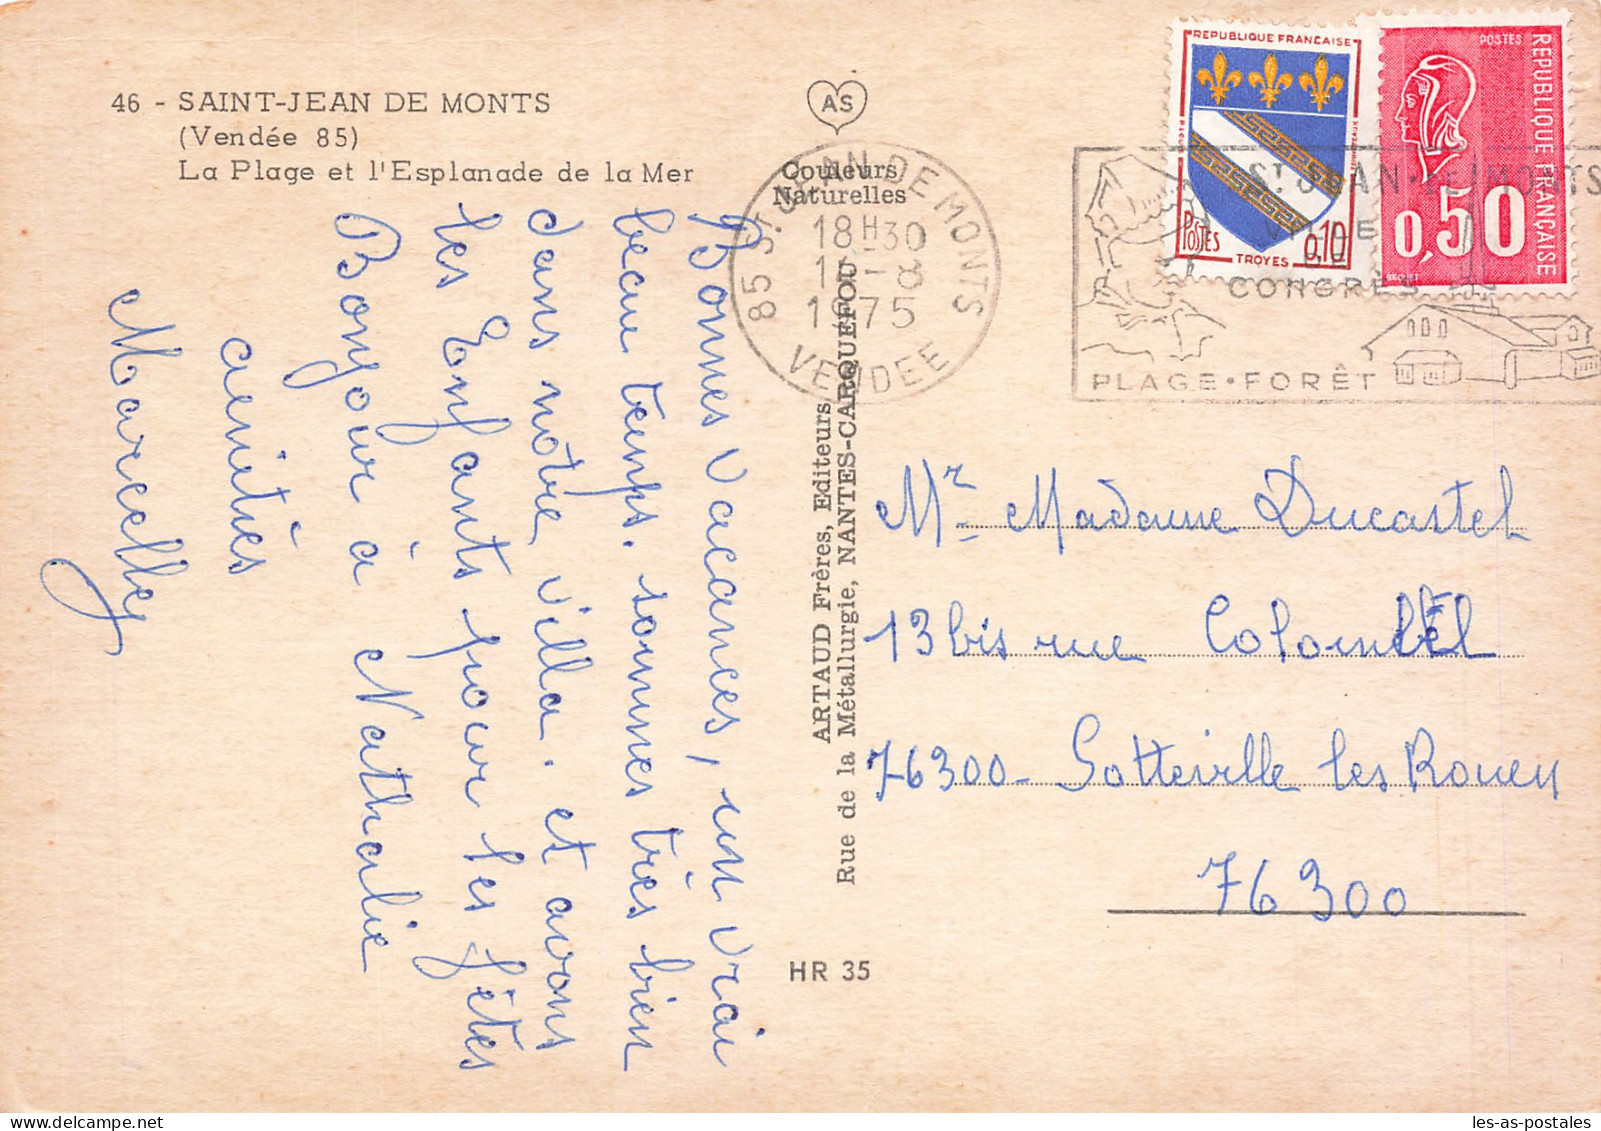 46 - SAINT-JEAN DE MONTS
(Vendée 85)
La Plage et l'Esplanade de la Mer
AS
Couleurs
Naturelles
85 ST JEAN DE MONTS
18H30
1975
VENDEE
REPUBLIQUE FRANCAISE
POSTES
TROYES
0,10
POSTES
REPUBLIQUE FRANÇAISE
0,50
BEQUET
ST JEAN-DE-MONTS
VILLE
DE
CONGRÈS
PLAGE • FORÊT
Bonnes vacances, un vrai
beau temps. sommes très bien
dans notre villa. et avons
les Enfants pour les fêtes
Bonjour à Nathalie
amitiés
Marcelle
ARTAUD Frères, Editeurs
Rue de la Métallurgie, NANTES-CARQUEFOU
HR 35
Mr. Madame Ducastel
13 bis rue Colombel
76300 - Sotteville les Rouen
76300
les-as-postales